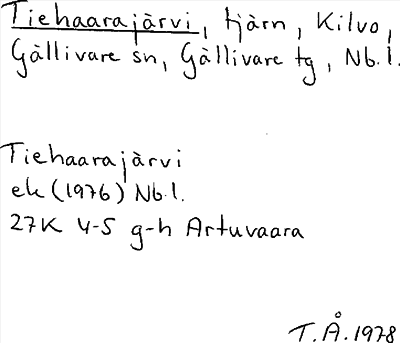 Tiehaarajärvi, tjärn, Kilvo,
Gällivare sn, Gällivare tg, Nb.l.
Tiehaarajärvi
ek (1976) Nb.l.
27K 4-5 g-h Artuvaara
T.Å. 1978